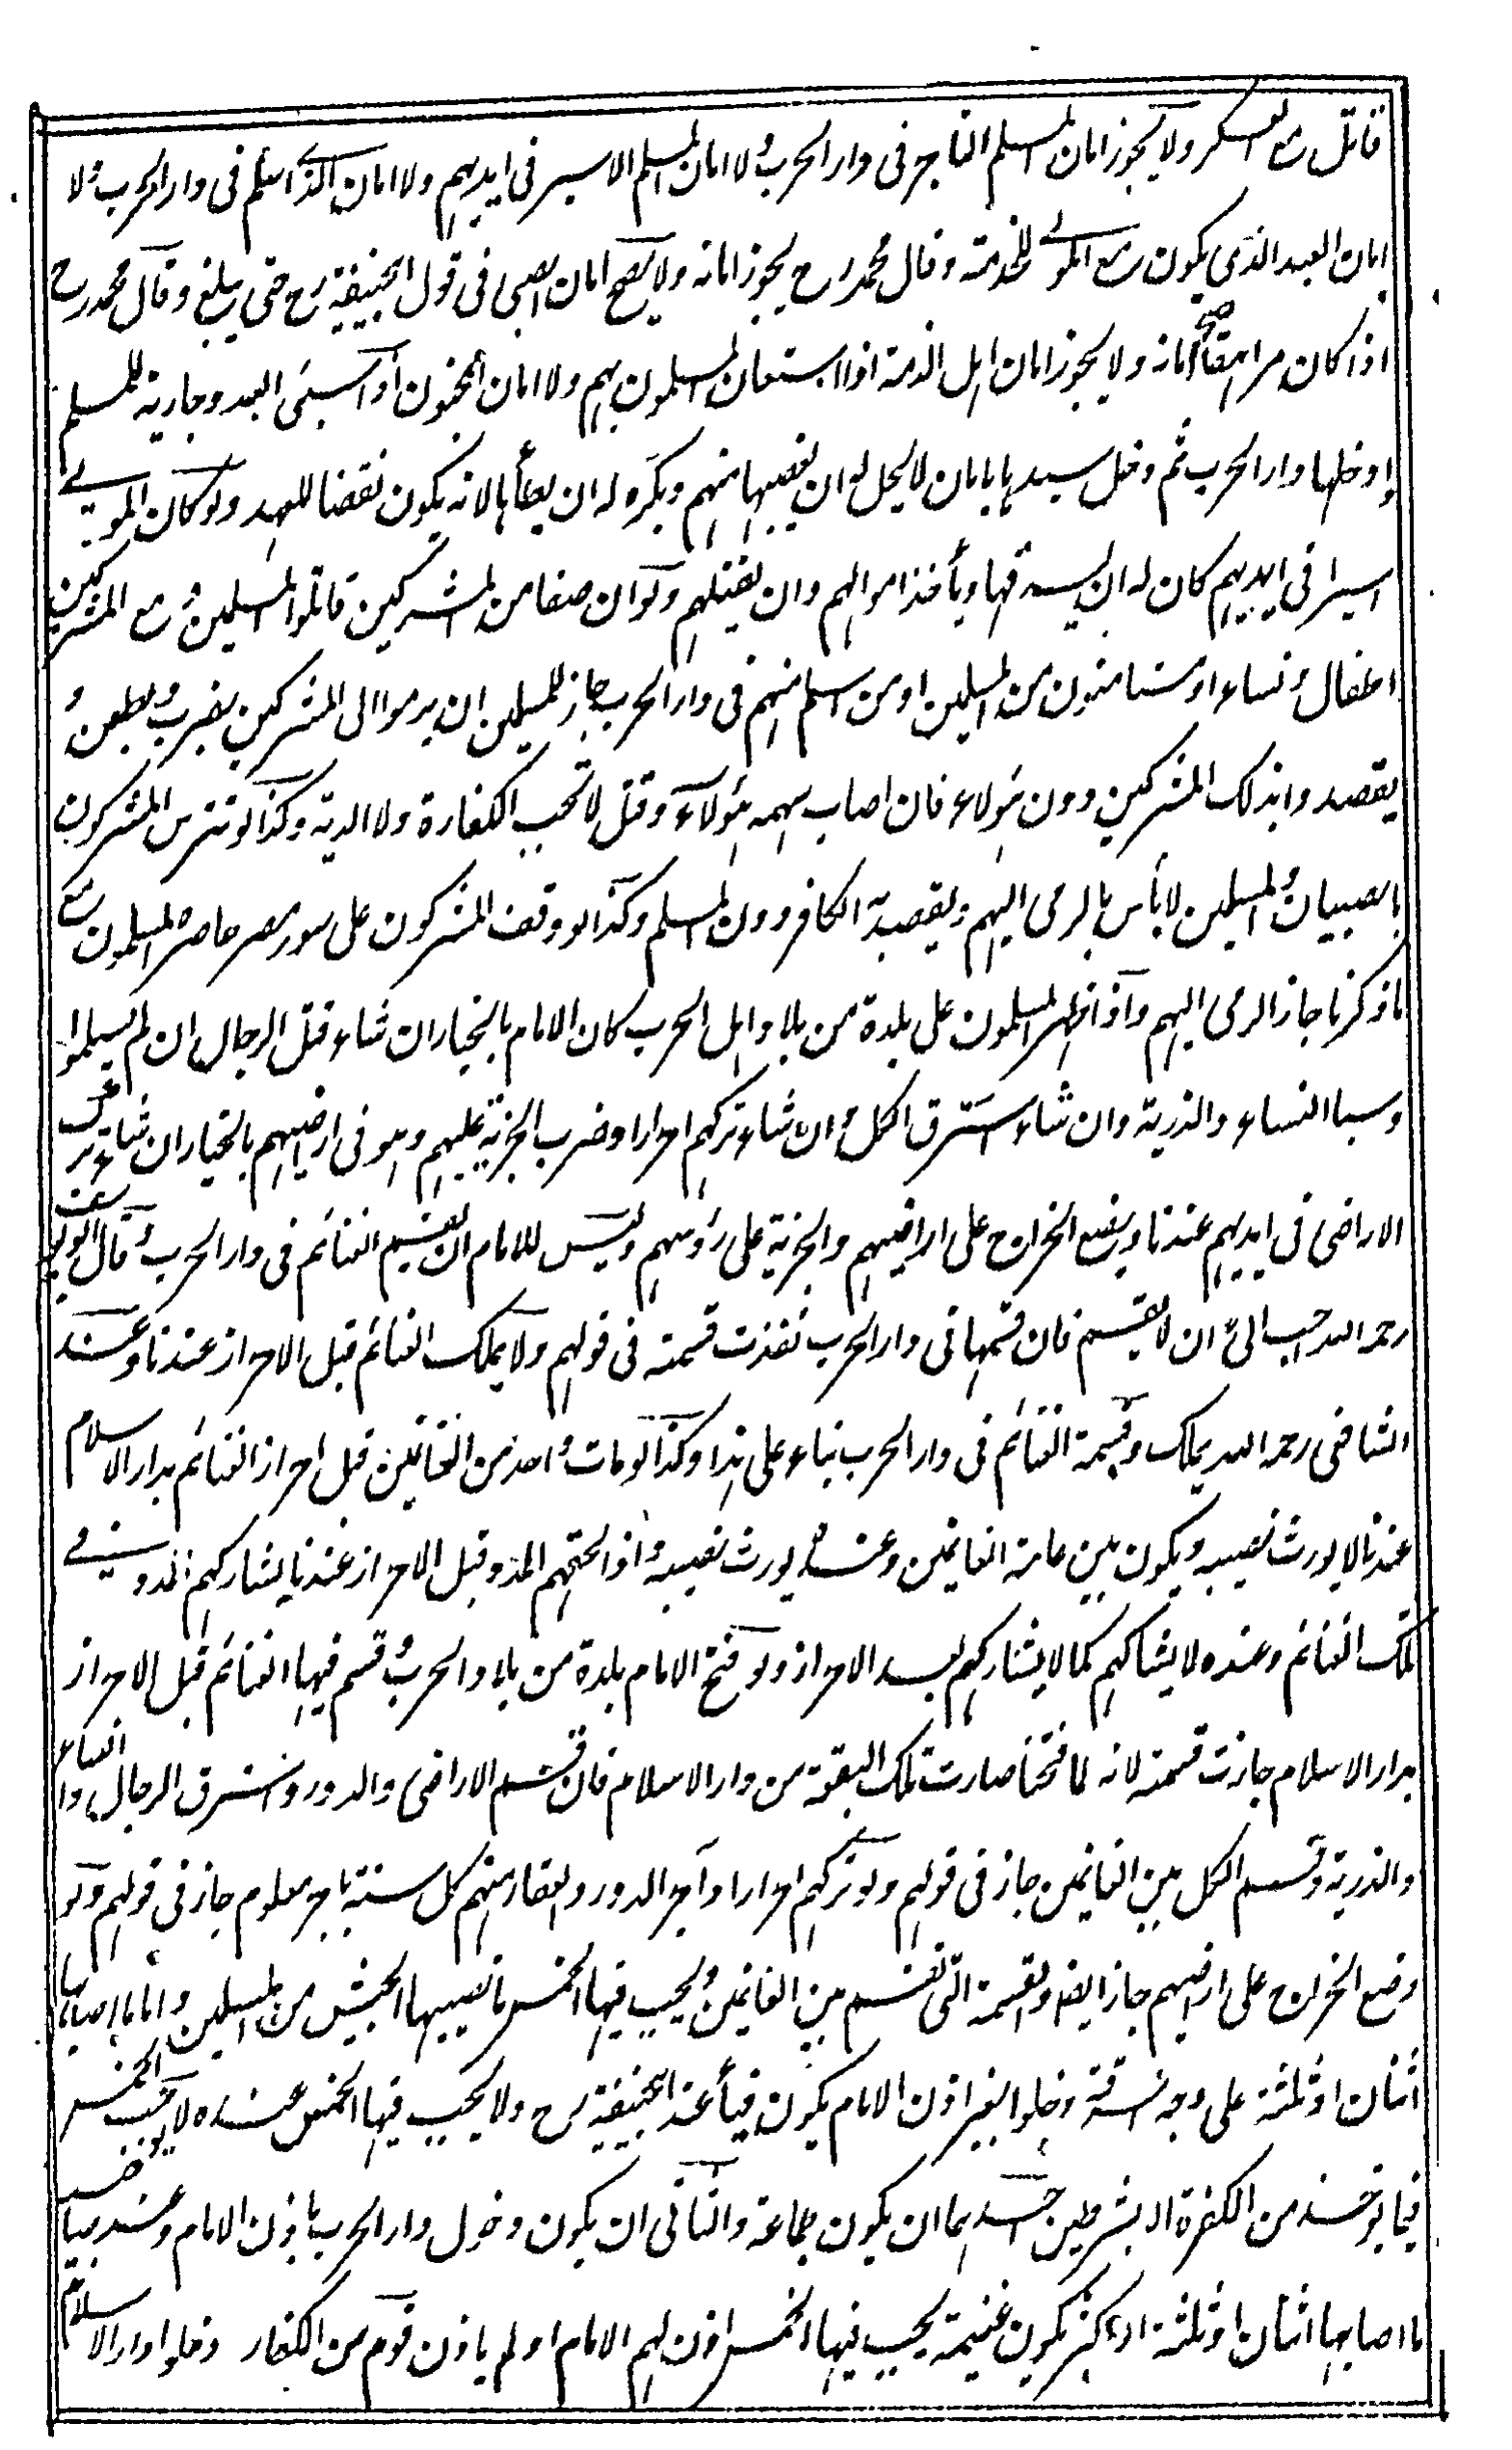 قاتل مع العسكر ولا يجوز امان المسلم التاجر فى دار الحرب ولا امان المسلم الاسير فى ايديهم ولا امان الذى اسلم فى دار الحرب ولا
امان العبد الذى يكون مع المولى لخدمته وقال محمد رح يجوز امانه ولا يصح امان الصبى فى قول ابيحنيفة رح حتى يبلغ وقال محمد رح
اذا كان مراهقا صح امانه ولا يجوز امان اهل الذمة اذا استعان المسلمون بهم ولا امان المجنون واذا سبى العدو جارية للمسلم
وادخلها دار الحرب ثم دخل سيدها بامان لا يحل له ان يغصبها منهم ويكره له ان يطأها لانه يكون نقضا للعهد ولو كان المولى
اسيرا فى ايديهم كان له ان يسرقها ويأخذ اموالهم وان يقتلهم ولو ان صفا من المشركين قاتلوا المسلمين ومع المشركين
اطفال ونساء او مستامنون من المسلمين او من اسلم منهم فى دار الحرب جاز للمسلمين ان يرموا الى المشركين بضرب وطعن و
يقصدوا بذلك المشركين دون هؤلاء فان اصاب سهمه هؤلاء وقتل لا تجب الكفارة ولا الدية وكذا لو تترس المشركون
بالصبيان والمسلمين لا بأس بالرمى اليهم ويقصد به الكافر دون المسلم وكذا لو وقف المشركون على سور مصر حاصره المسلمون مع
ما ذكرنا جاز الرمى اليهم واذا ظهر المسلمون على بلدة من بلاد اهل الحرب كان الامام بالخيار ان شاء قتل الرجال ان لم يسلموا
وسبا النساء والذرية وان شاء استرق الكل وان شاء تركهم احرارا وضرب الجزية عليهم وهو فى اراضيهم بالخيار ان شاء ترك
الاراضى فى ايديهم عندنا ويضع الخراج على اراضيهم والجزية على رؤسهم وليس للامام ان يقسم الغنائم فى دار الحرب وقال ابو يوسف
رحمه الله احب الى ان لا يقسم فان قسمها فى دار الحرب نفذت قسمته فى قولهم ولا يملك الغنائم قبل الاحراز عندنا وعند
الشافعى رحمه الله يملك وقسمة الغنائم فى دار الحرب بناء على هذا وكذا لو مات واحد من الغانمين قبل احراز الغنائم بدار الاسلام
عندنا لا يورث نصيبه ويكون بين عامة الغانمين وعنده يورث نصيبه واذا لحقهم المدد قبل الاحراز عندنا يشاركهم المدد فى
تلك الغنائم وعنده لا يشاركهم كما لا يشاركهم بعد الاحراز ولو فتح الامام بلدة من بلاد الحرب وقسم فيها الغنائم قبل الاحراز
بدار الاسلام جازت قسمته لانه لما فتحها صارت تلك البقعة من دار الاسلام فان قسم الاراضى والدور واسترق الرجال والنساء
والذرية وقسم الكل بين الغانمين جاز فى قولهم ولو تركهم احرارا وآجر الدور والعقار منهم كل سنة باجر معلوم جاز فى قولهم ولو
وضع الخراج على اراضيهم جاز ايضا والقسمة التى تقسم بين الغانمين ويجب فيها الخمس ما يصيبها الجيش من المسلمين واما ما اصابها
اثنان او ثلثة على وجه السرقة دخلوا بغير اذن الامام يكون فيأ عند ابيحنيفة رح ولا يجب فيها الخمس عنده لا يجب الخمس
فيما يؤخذ من الكفرة الا بشرطين احدهما ان يكون جماعة والثانى ان يكون دخول دار الحرب باذن الامام وعند
ما اصابها اثنان او ثلثة او اكثر يكون غنيمة يجب فيها الخمس اذن لهم الامام او لم يأذن قوم من الكفار دخلوا دار الاسلام